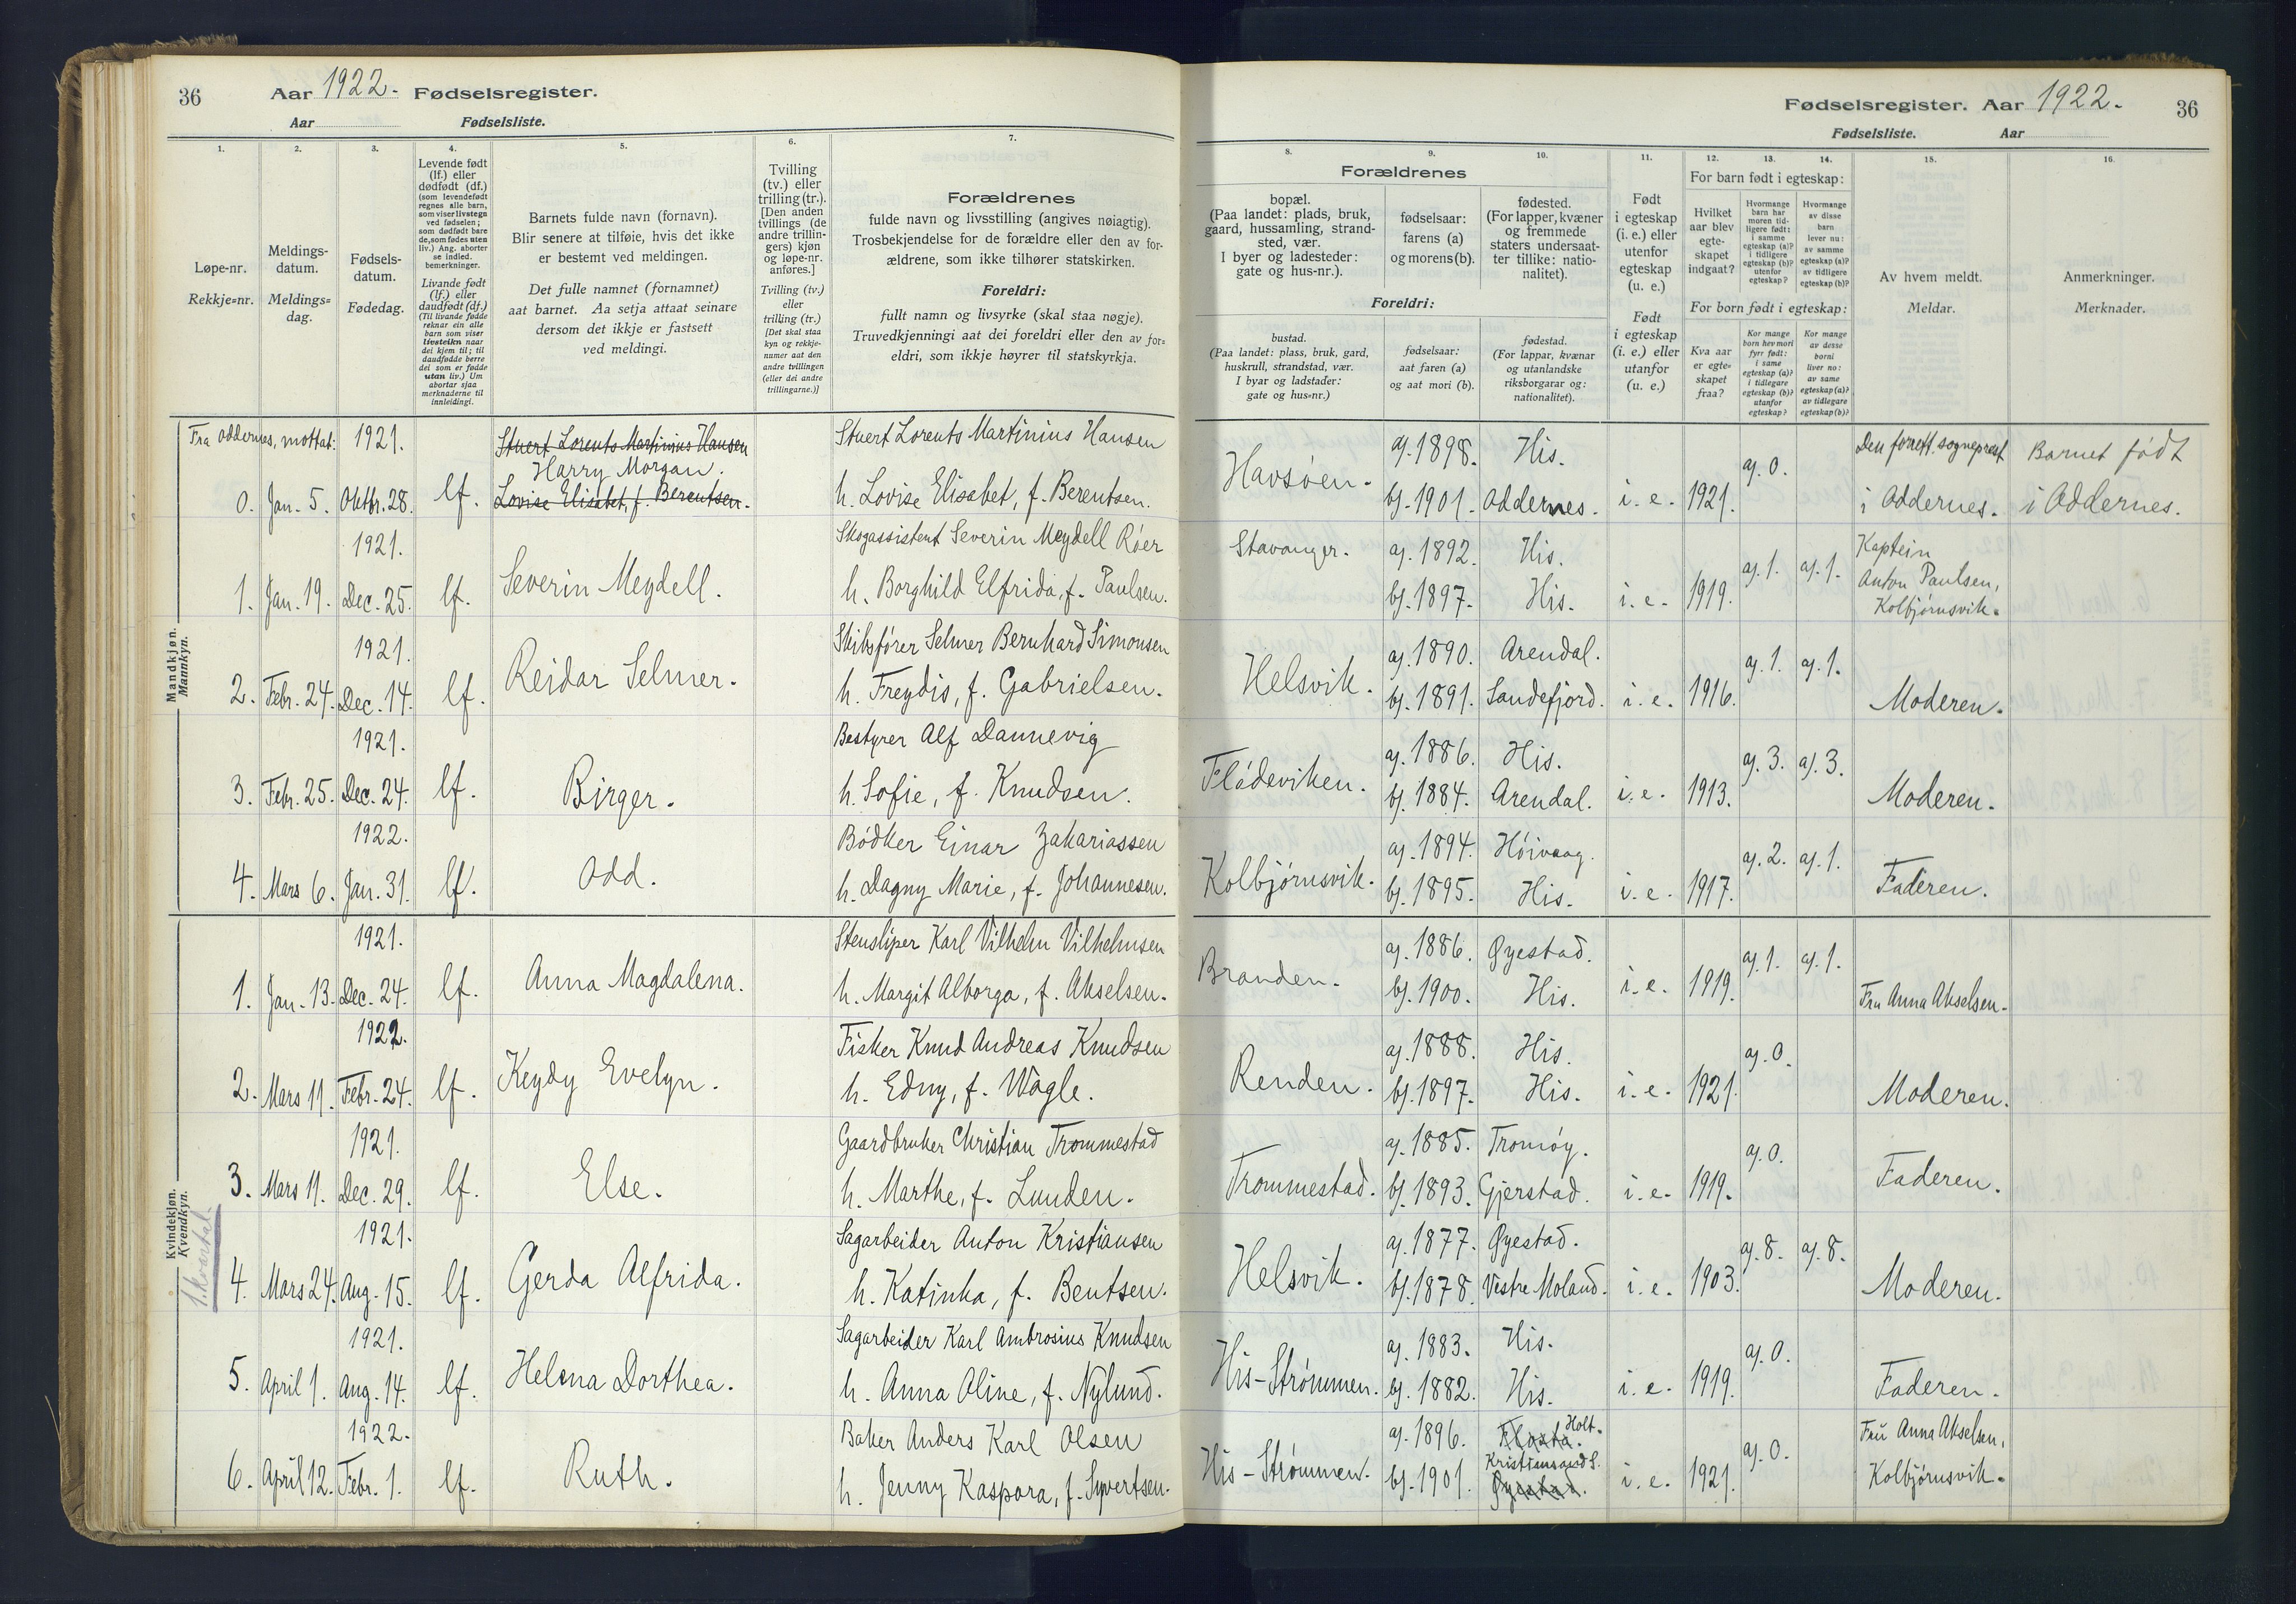 36 Aar 1922. Fødselsregister.
Aar Fødselsliste.
1. 2. 3. 4. 5. 6. 7.
Løpe-nr.
Rekkje=nr.
Meldings-
datum.
Meldings=
dag.
Fødsels-
datum.
Fødedag.
Levende født
(lf.) eller
dødfødt (df.)
(som levendefødt
regnes alle barn,
som viser livstegn
ved fødselen;
som dødfødt bare
de, som fødes uten
liv.) Ang. aborter
se indled.
bemerkninger.
Livande født
(lf.) eller
daudfødt (df.)
(Til livande fødde
reknar ein alle
barn som viser
livsteikn naar
dei kjem til; til
daudfødde berre
dei som er fødde
utan liv.) Um
abortar sjaa
merknaderne til
innleidingi.
Barnets fulde navn (fornavn).
Blir senere at tilføie, hvis det ikke
er bestemt ved meldingen.
Det fulle namnet (fornamnet)
aat barnet. Aa setja attaat seinare
dersom det ikkje er fastsett
ved meldingi.
Tvilling
(tv.) eller
trilling (tr.).
[Den anden
tvillings (de
andre trillin-
gers) kjøn
og løpe-nr.
anføres.]
Tvilling (tv.)
eller
trilling (tr.)
[Det skal staa
kyn og rekkje-
numer aat den
andre tvillingen
(eller dei andre
trillingarne.)]
Forældrenes
fulde navn og livsstilling (angives nøiagtig).
Trosbekjendelse for de forældre eller den av for-
ældrene, som ikke tilhører statskirken.
Foreldri:
fullt namn og livsyrke (skal staa nøgje).
Truvedkjenningi aat dei foreldri eller den av for=
eldri, som ikkje høyrer til statskyrkja.
Mandkjøn.
Mannkyn.
Fra Oddernes, mottat: 1921. Stuert Lorents Martinius Hansen Stuert Lorents Martinius Hansen
Harry Morgan.
0. Jan. 5. Oktbr. 28. lf. Lovise Elisabet, f. Berentsen. h. Lovise Elisabet, f. Berentsen.
1921. Skogassistent Severin Meydell Röer
1. Jan. 19. Dec. 25. lf. Severin Meydell. h. Borghild Elfrida, f. Paulsen.
1921. Skibsförer Selmer Bernhard Simonsen
2. Febr. 24. Dec. 14. lf. Reidar Selmer. h. Freydis, f. Gabrielsen.
1921. Bestyrer Alf Dannevig
3. Febr. 25. Dec. 24. lf. Birger. h. Sofie, f. Knudsen.
1922. Bödker Einar Zakariassen
4. Mars 6. Jan. 31. lf. Odd. h. Dagny Marie, f. Johannesen.
Kvindekjøn.
Kvendkyn.
1. kvartal.
1921. Stensliper Karl Vilhelm Vilhelmsen
1. Jan. 13. Dec. 24. lf. Anna Magdalena. h. Margit Alborga, f. Akselsen.
1922. Fisker Knud Andreas Knudsen
2. Mars 11. Febr. 24. lf. Keydy Evelyn. h. Edny, f. Wågle.
1921. Gaardbruker Christian Trommestad
3. Mars 11. Dec. 29. lf. Else. h. Marthe, f. Lunden.
1921. Sagarbeider Anton Kristiansen
4. Mars 24. Aug. 15. lf. Gerda Alfrida. h. Katinka, f. Bentsen.
1921. Sagarbeider Karl Ambrosius Knudsen
5. April 1. Aug. 14. lf. Helena Dorthea. h. Anna Oline, f. Nylund.
1922. Baker Anders Karl Olsen
6. April 12. Febr. 1. lf. Ruth. h. Jenny Kaspora, f. Syvertsen.
Fødselsregister. Aar 1922. 36
Fødselsliste. Aar
8. 9. 10. 11. 12. 13. 14. 15. 16.
Forældrenes
bopæl.
(Paa landet: plads, bruk,
gaard, hussamling, strand-
sted, vær.
I byer og ladesteder:
gate og hus-nr.).
fødselsaar:
farens (a)
og morens (b).
fødested.
(For lapper, kvæner
og fremmede
staters undersaat-
ter tillike: natio-
nalitet).
Foreldri:
bustad.
(Paa landet: plass, bruk, gard,
huskrull, strandstad, vær.
I byar og ladstader:
gate og hus=nr.)
fødselsaar:
aat faren (a)
og aat mori (b).
fødestad.
(For lappar, kvænar
og utanlandske
riksborgarar og:
nationalitet).
Født
i egteskap
(i. e.) eller
utenfor
egteskap
(u. e.)
Født
i egteskap
(i. e.) eller
utanfor
(u. e.)
For barn født i egteskap:
Hvilket
aar blev
egte-
skapet
indgaat?
Hvormange
barn har
moren tid-
ligere født:
i samme
egteskap (a)?
i tidligere
egteskap (b)?
utenfor
egteskap?
Hvormange
av disse
barn
lever nu:
av samme
egteskap (a)?
av tidligere
egteskap (b)?
For born født i egteskap:
Kva aar
er egte=
skapet
fraa?
Kor mange
born hev mori
fyrr født:
i same
egteskap (a)?
i tidlegare
egteskap (b)?
utanfor
egteskap?
Kor mange
av desse
borni
liver no:
av same
egteskap (a)?
av tidlegare
egteskap (b)?
Av hvem meldt.
Meldar.
Anmerkninger.
Merknader.
a). 1898. His. a). 0. Den forrett. sogneprest Barnet født
Havsöen. b). 1901. Oddernes. i. e. 1921. i Oddernes. i Oddernes.
Stavanger. a). 1892. His. a). 1. a). 1. Kaptein
Anton Paulsen,
b). 1897. His. i. e. 1919. Kolbjörnsvik.
a). 1890. Arendal. a). 1. a). 1.
Helsvik. b). 1891. Sandefjord. i. e. 1916. Moderen.
a). 1886. His. a). 3. a). 3.
Flödeviken. b). 1884. Arendal. i. e. 1913. Moderen.
a). 1894. Höivaag. a). 2. a). 1.
Kolbjörnsvik. b). 1895. His. i. e. 1917. Faderen.
a). 1886. Øyestad. a). 1. a). 1.
Branden. b). 1900. His. i. e. 1919. Fru Anna Akselsen.
a). 1888. His. a). 0.
Renden. b). 1897. His. i. e. 1921. Moderen.
a). 1885. Tromöy. a). 0.
Trommestad. b). 1893. Gjerstad. i. e. 1919. Faderen.
a). 1877. Øyestad. a). 8. a). 8.
Helsvik. b). 1878. Vestre Moland. i. e. 1903. Moderen.
a). 1883. His. a). 0.
His-Strömmen. b). 1882. His. i. e. 1919. Faderen.
a). 1896. Flosta. Holt. a). 0. Frü Anna Akselsen,
Kristiansand S.
His-Strömmen. b). 1901. Øyestad. i. e. 1921. Kolbjörnsvik.